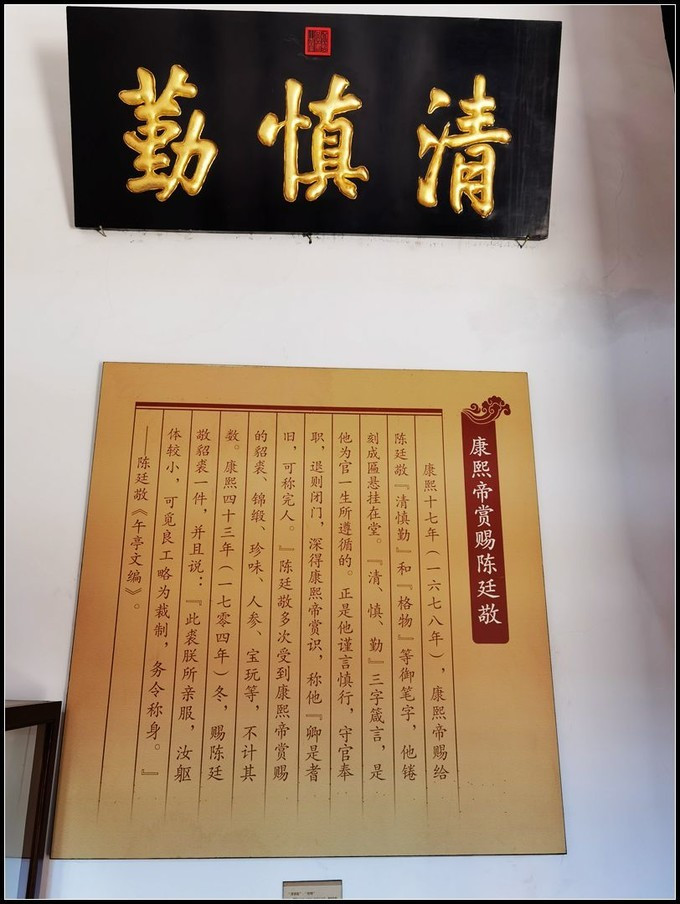 清慎勤
康熙帝赏赐陈廷敬
康熙十七年(一六七八年),康熙帝赐给
陈廷敬『清慎勤』和『格物』等御笔字,他锩
刻成匾悬挂在堂。『清、慎、勤』三字箴言,是
他为官一生所遵循的。正是他谨言慎行,守官奉
职,退则闭门,深得康熙帝赏识,称他『卿是耆
旧,可称完人。』陈廷敬多次受到康熙帝赏赐
的貂裘、锦缎、珍味、人参、宝玩等,不计其
数。康熙四十三年(一七零四年)冬,赐陈廷
敬貂裘一件,并且说:『此裘朕所亲服,汝躯
体较小,可觅良工略为裁制,务令称身。』
——陈廷敬《午亭文编》。